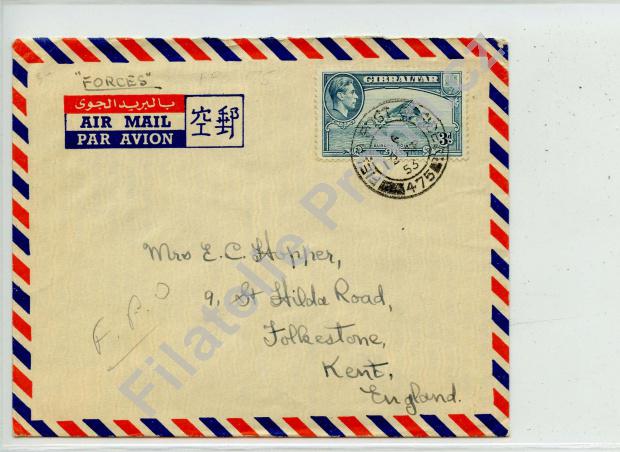 "FORCES"
بالبريد الجوى
AIR MAIL
PAR AVION
空郵
GIBRALTAR
3d
FIELD POST OFFICE
53
475
Mrs E.C. Hopper,
9, St Hilda Road,
Folkestone,
Kent,
England.
F.P.O
Filatelie Pr